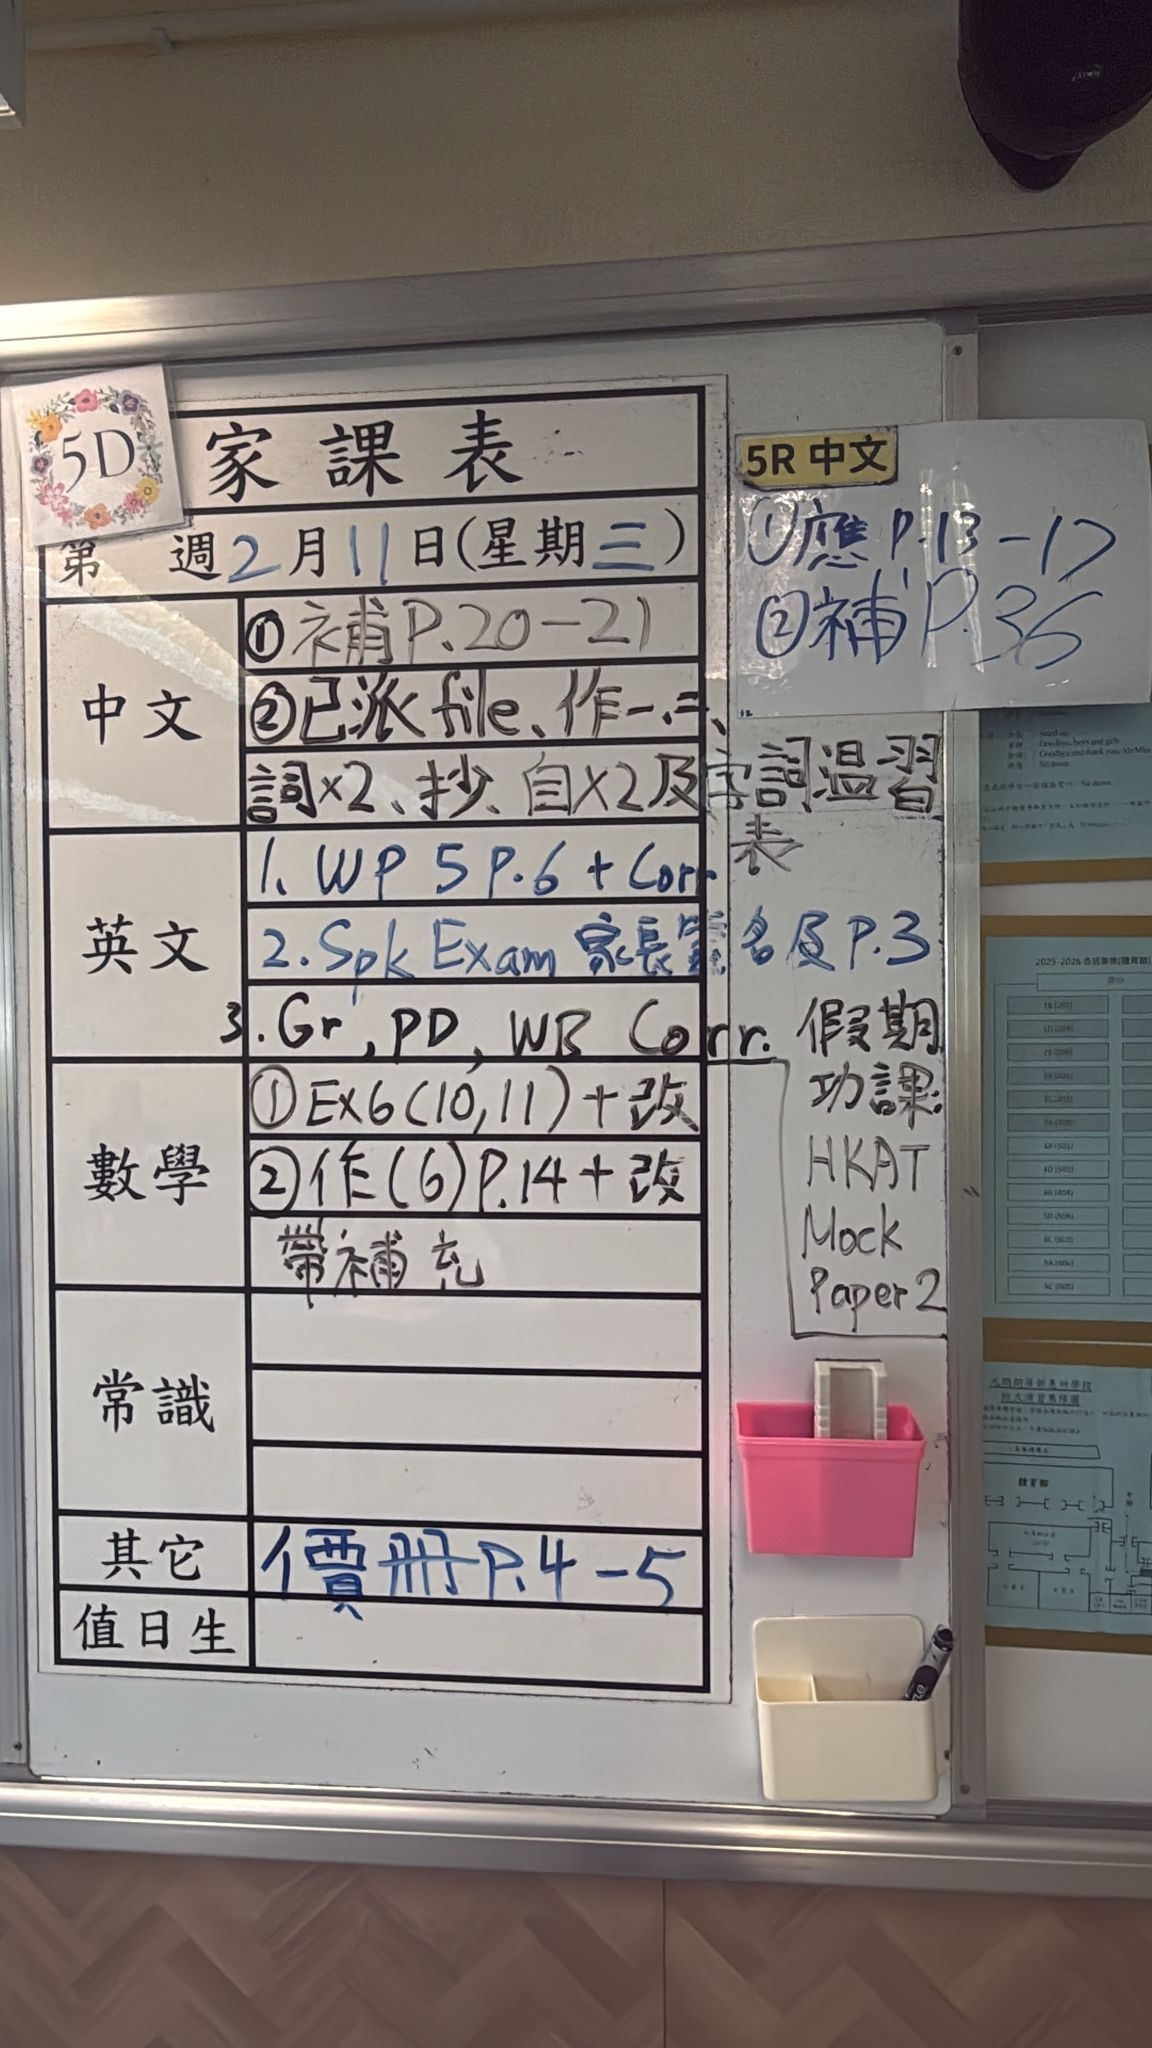 5D
家課表
第 週2月11日(星期三)
中文
①補P.20-21
②已派file、作一、二、
詞×2、抄、自×2及字詞温習
表
英文
1. WP 5 P.6 + Corr
2. Spk Exam 家長簽名及P.3
3. Gr, PD, WB Corr.
數學
①Ex6(10,11)+改
②作(6)P.14+改
帶補充
常識
其它
價冊P.4-5
值日生
5R 中文
①應P.13-17
②補P.36
假期
功課:
HKAT
Mock
Paper 2
Goodbye, boys and girls.
2025-2026